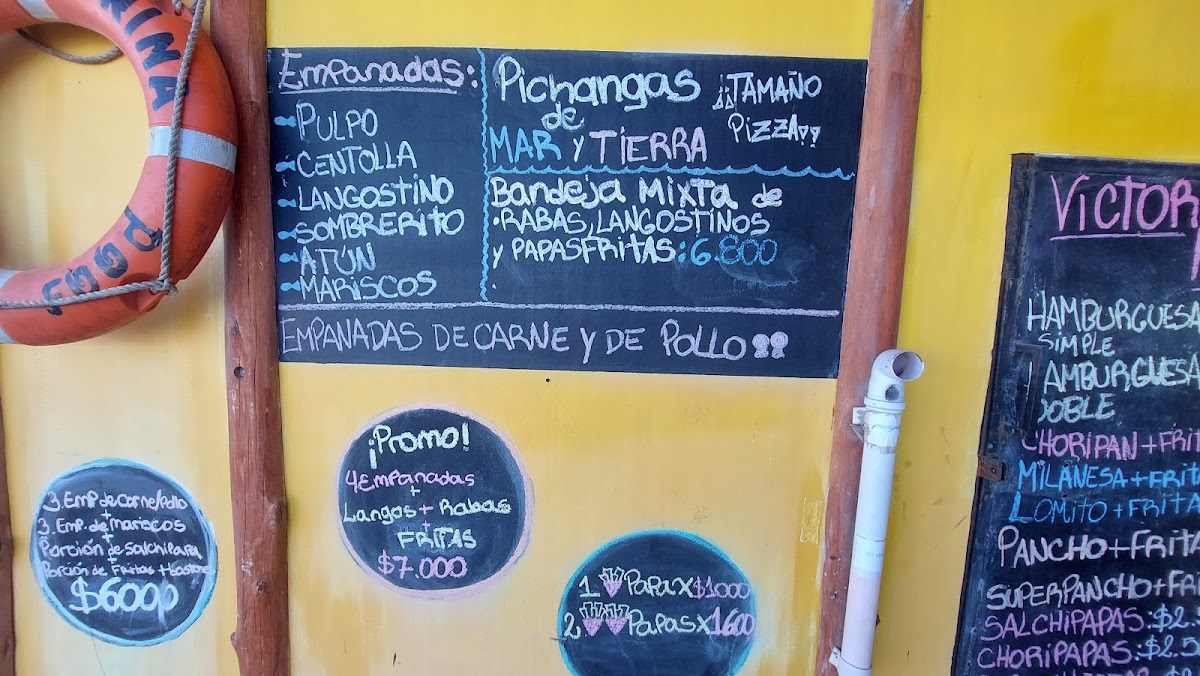 RINA
PGGS
Empanadas:
PULPO
CENTOLLA
LANGOSTINO
SOMBRERITO
ATÚN
MARISCOS
Pichangas ¡¡TAMAÑO
de PIZZA!!
MAR y TIERRA
Bandeja Mixta de
RABAS, LANGOSTINOS
y PAPAS FRITAS: 6.800
EMPANADAS DE CARNE Y DE POLLO
3. Emp de Carne/Pollo
+
3. Emp. de Mariscos
+
Porción de Salchipapa
+
Porción de Fritas +
$6000
¡Promo!
4 Empanadas
+
Langos + Rabas
+
FRITAS
$7.000
1 Papa X $1000
2 Papas X 1600
VICTOR
HAMBURGUESA
SIMPLE
HAMBURGUESA
DOBLE
CHORIPAN + FRIT
MILANESA + FRIT
LOMITO + FRITA
PANCHO + FRITA
SUPERPANCHO + FR
SALCHIPAPAS: $2.
CHORIPAPAS: $2.5